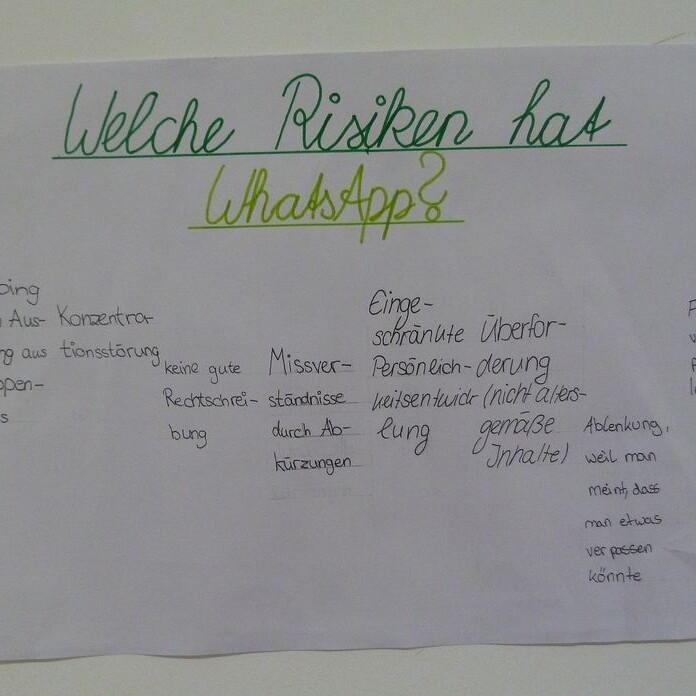 Welche Risiken hat
WhatsApp?
ping
Aus-
ng aus
ppen-
s
Konzentra-
tionsstörung
keine gute
Rechtschrei-
bung
Missver-
ständnisse
durch Ab-
kürzungen
Einge-
schränkte
Persöneich-
keitsentwick-
lung
Überfor-
derung
(nicht alters-
gemäße
Inhalte)
Ablenkung,
weil man
meint, dass
man etwas
verpassen
könnte